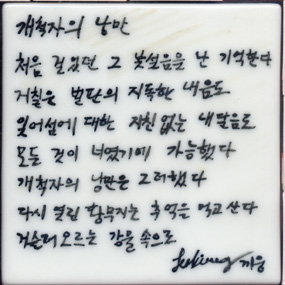 개척자의 낭만
처음 걸었던 그 낯설음을 난 기억한다
거칠은 벌판의 지독한 내음도
잊어섬에 대한 지친 없는 내달음도
모든 것이 너였기에 가능했다
개척자의 낭만은 그러했다
다시 열린 황무지는 추억을 먹고 산다
거슬러 오르는 강물 속으로
까웅